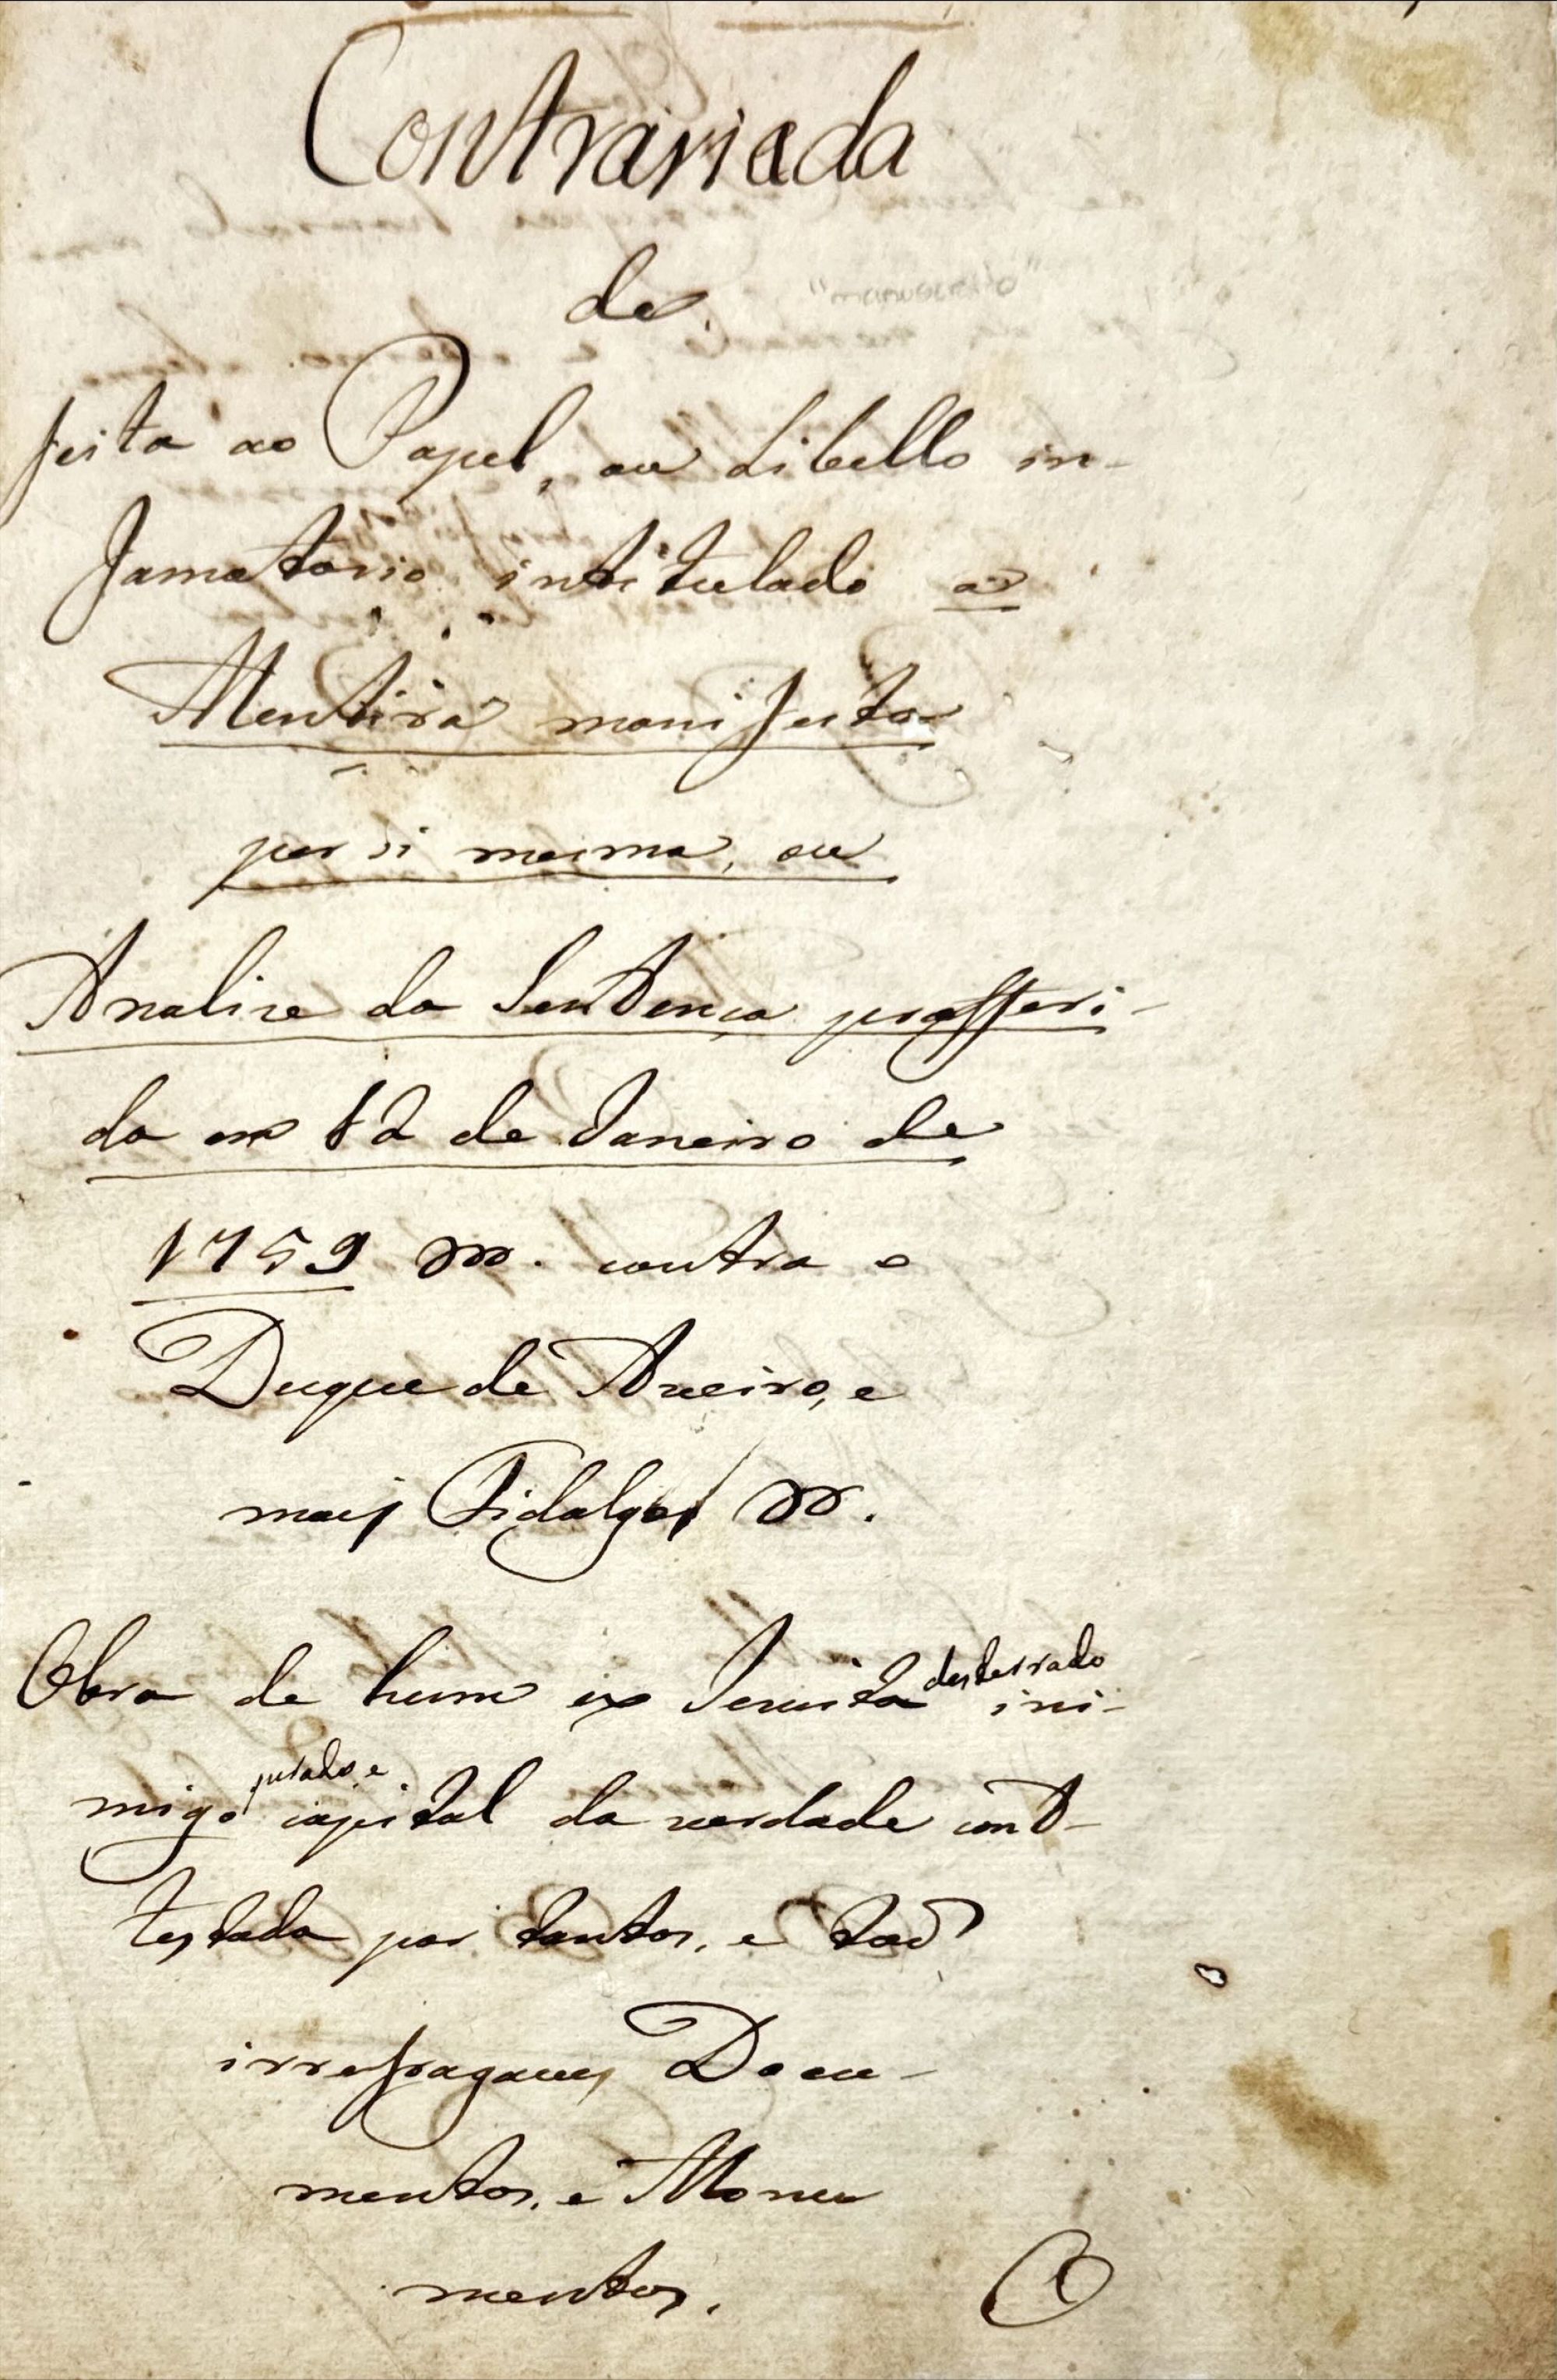 Contrariada
de.
"manuscrito"
feita ao Papel, ou Libello in-
famatorio intitulado a
Mentira manifesta
por si mesma, ou
Analize da Sentença profferi-
da em 12 de Janeiro de
1759 contra o
Duque de Aveiro, e
mais Fidalgos
Obra de hum ex Jesuita desterrado ini-
migo jurado, e capital da verdade cont-
testada por tantos, e taõ
irrefragaveis Docu-
mentos, e Monu
mentos.
O